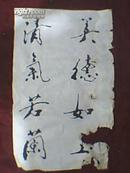 美德如玉
清氣若蘭